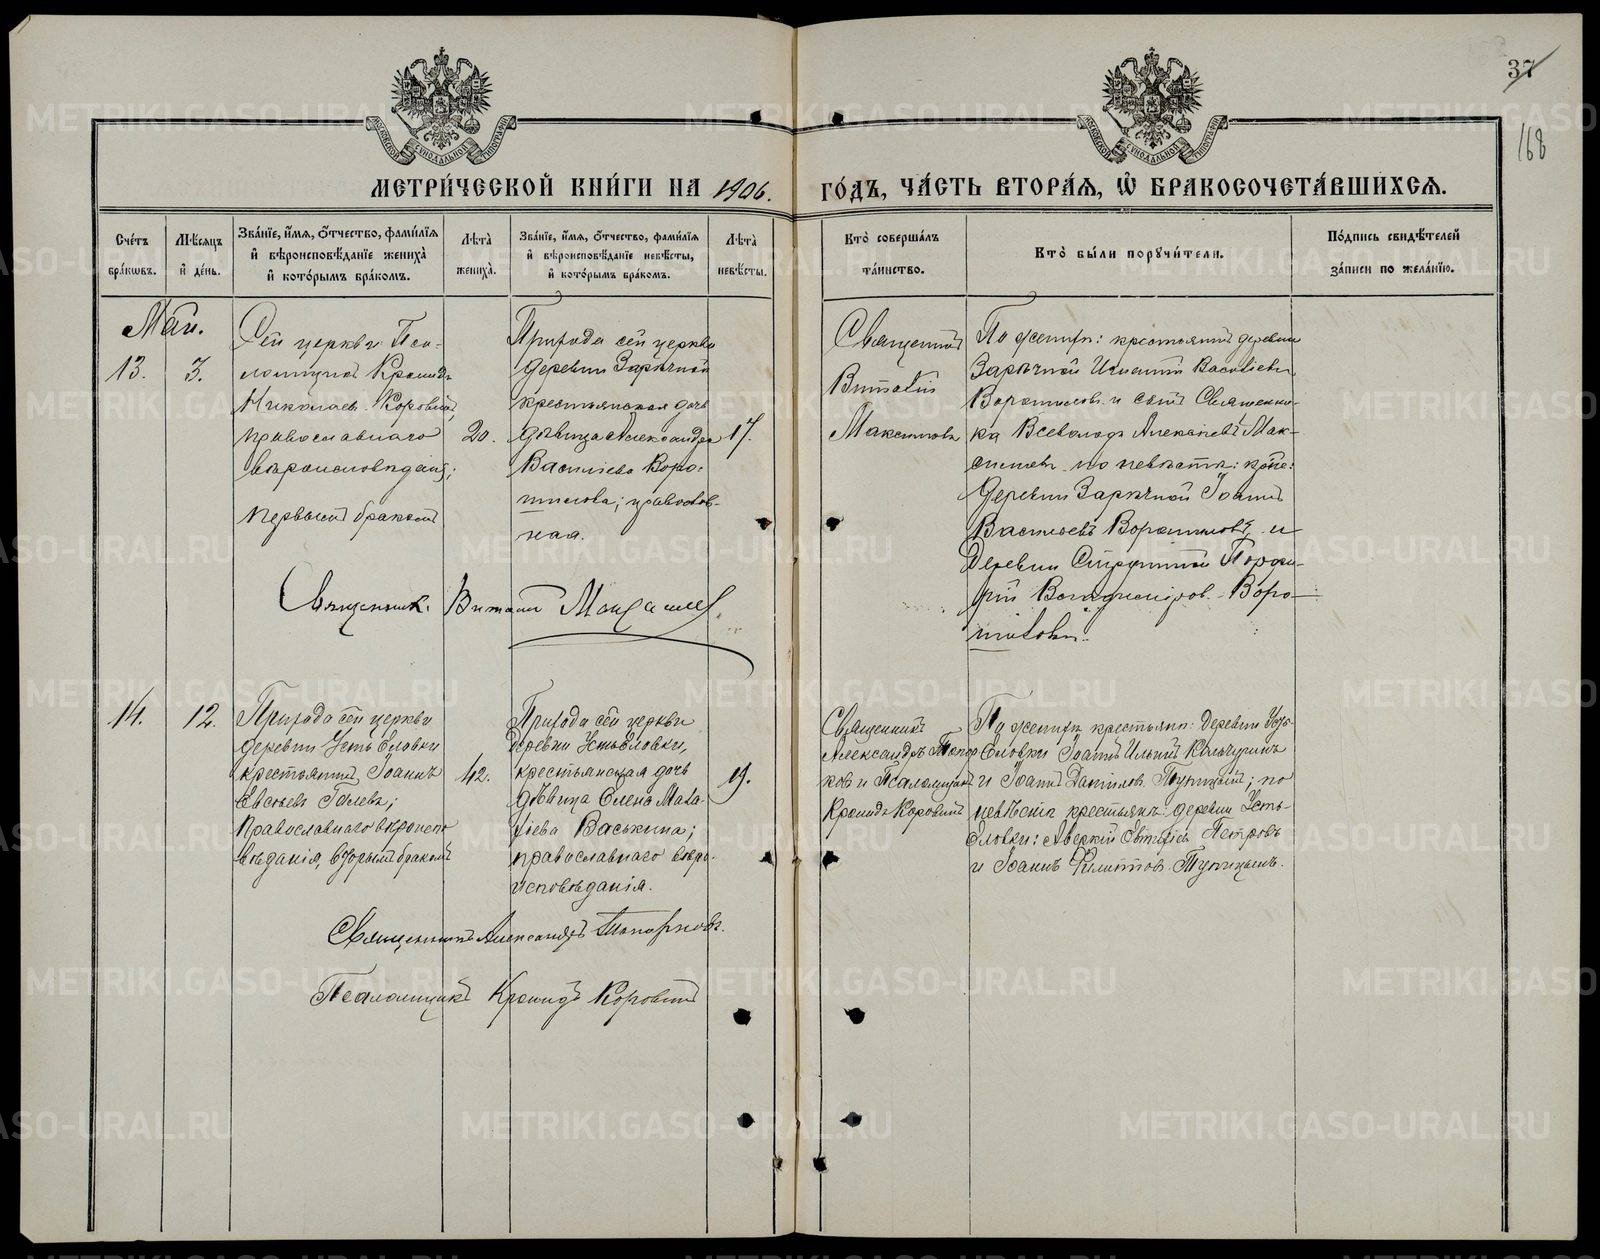 37
168
МОСКОВСКОЙ СѴНОДАЛЬНОЙ ТИПОГРАФІИ
МОСКОВСКОЙ СѴНОДАЛЬНОЙ ТИПОГРАФІИ
МЕТРИ́ЧЕСКОЙ КНИ́ГИ НА 1906.
ГО́ДЪ, ЧА́СТЬ ВТОРА́Я, Ѡ БРАКОСОЧЕТА́ВШИХСЯ.
Сче́тъ
бра́кѡвъ.
Мѣ́сяцъ
и де́нь.
Зва́нїе, и́мя, ѻ́тчество, фами́лїя
и вѣроисповѣ́данїе жениха̀
и кото́рымъ бра́комъ.
Лѣ́та
жениха̀.
Зва́нїе, и́мя, ѻ́тчество, фами́лїя
и вѣроисповѣ́данїе невѣ́сты,
и кото́рымъ бра́комъ.
Лѣ́та
невѣ́сты.
Кто̀ соверша́лъ
та́инство.
Кто̀ бы́ли порꙋчи́тели.
По́дпись свидѣ́телей
за́писи по жела́нїю.
Май.
13.
3.
Сей церкви Пса-
ломщикъ Кронидъ
Николаевъ Коровинъ
православнаго
вѣроисповѣданія;
первымъ бракомъ
20.
Прихода сей церкви
деревни Зарѣчной
крестьянская дочь
дѣвица Александра
Васильева Воро-
шилова; православ-
ная.
17.
Священникъ
Виталій
Максимовъ
По женихѣ: крестьянинъ деревни
Зарѣчной Игнатій Васильевъ
Ворошиловъ и сынъ Священни-
ка Всеволодъ Алексѣевъ Мак-
симовъ по невѣстѣ: кр-не:
деревни Зарѣчной Іоаннъ
Васильевъ Ворошиловъ и
Деревни Порфи-
рій Владиміров. Воро-
шиловъ.
Священникъ Виталій Максимовъ
14.
12.
Прихода сей церкви
деревни Усть Еловки
крестьянинъ Іоаннъ
Евсѣевъ
православнаго вѣроиспо
вѣданія, вторымъ бракомъ
42.
Прихода сей церкви
деревни Усть Еловки,
крестьянская дочь
дѣвица Елена Мата-
фіева Васькина;
православнаго вѣро-
исповѣданія.
19.
Священникъ
Александръ Топор
ковъ и Псаломщикъ
Кронидъ Коровинъ
По женихѣ крестьяне: Деревни Усть-
Еловки Іоаннъ Ильинъ Кальчугинъ
и Іоаннъ Даниловъ Тупицынъ; по
невѣстѣ крестьяне: деревни Усть-
Еловки: Аверкій Евтихіевъ Петровъ
и Іоаннъ Филипповъ Тупицынъ.
Священникъ Александръ Топорковъ.
Псаломщикъ Кронидъ Коровинъ